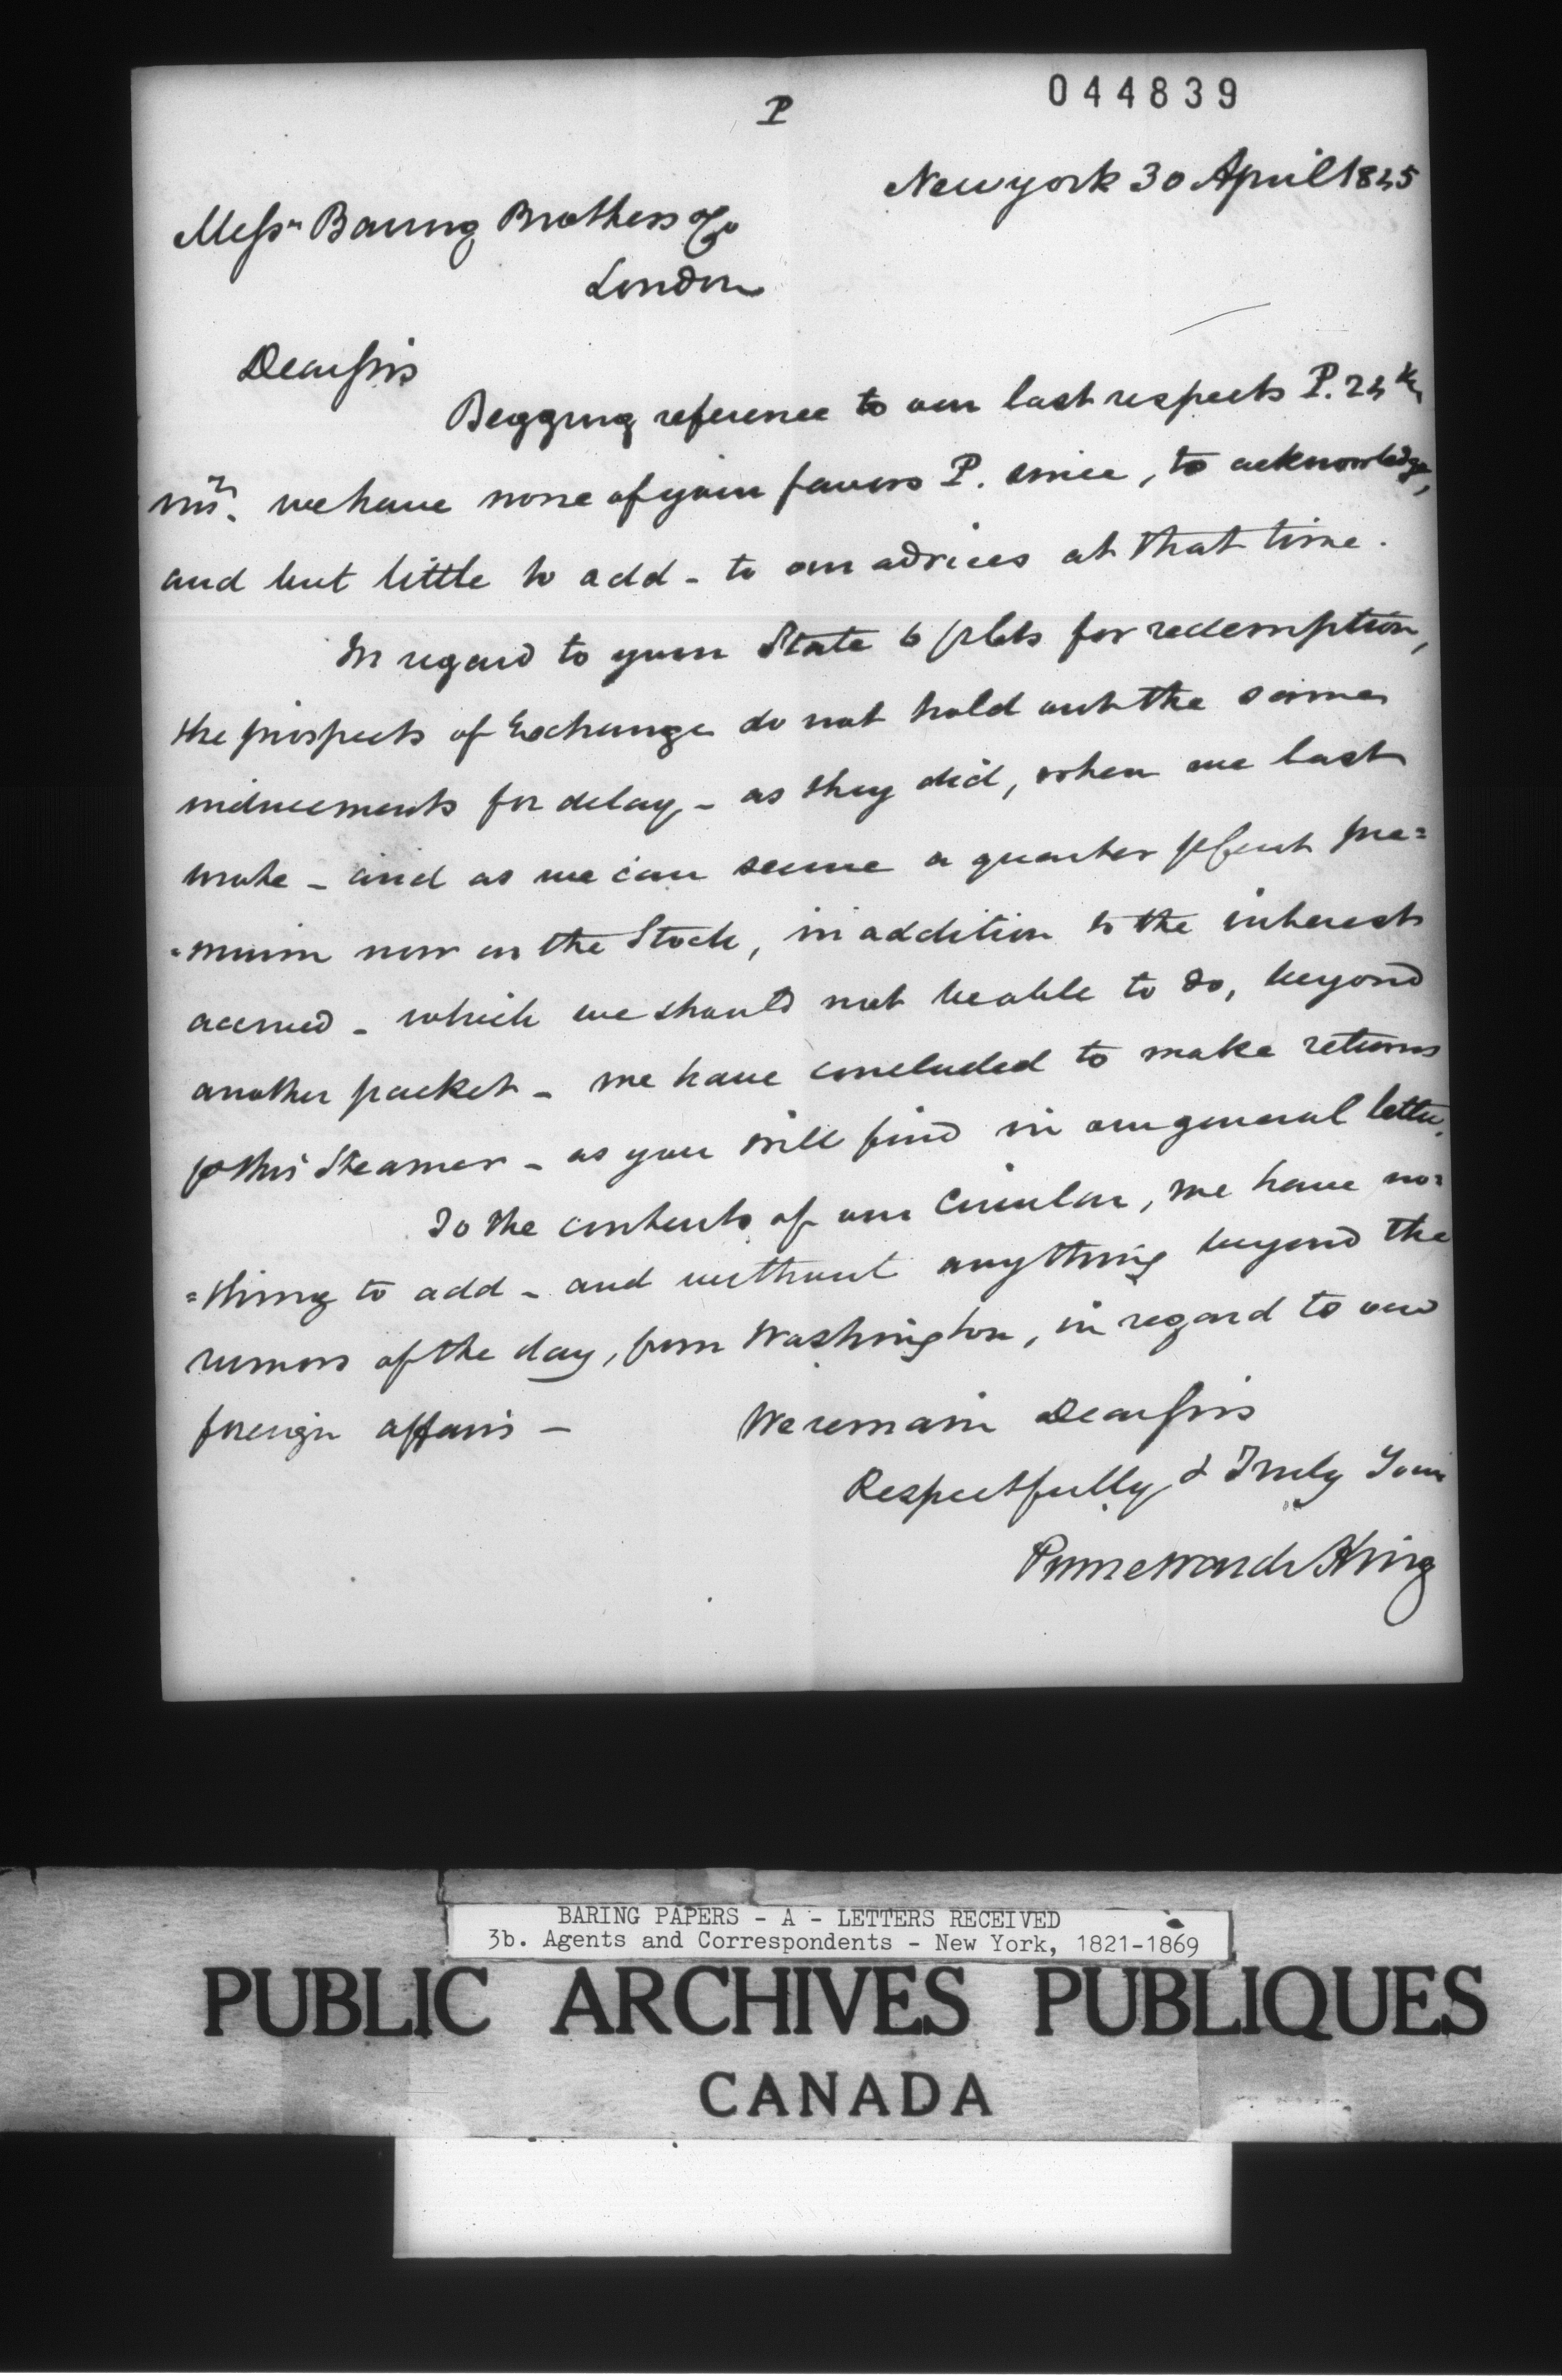 P
044839
New york 30 April 1845
Messrs Baring Brothers & Co
London
Dear Sirs
Begging reference to our last respects P. 24th
inst. we have none of your favors P. since, to acknowledge,
and but little to add - to our advices at that time.
In regard to your State 6 pCts for redemption,
the prospects of Exchange do not hold out the same
inducements for delay - as they did, when we last
wrote - and as we can secure a quarter pCent pre=
=mium now on the Stock, in addition to the interest
accrued - which we should not be able to do, beyond
another packet - we have concluded to make returns
p this Steamer - as you will find in our general letter.
To the contents of our Circular, we have no=
=thing to add - and without anything beyond the
rumors of the day, from Washington, in regard to our
foreign affairs -
We remain Dear Sirs
Respectfully & Truly Yours
Prime Ward & King
BARING PAPERS - A - LETTERS RECEIVED
3b. Agents and Correspondents - New York, 1821-1869
PUBLIC ARCHIVES PUBLIQUES
CANADA